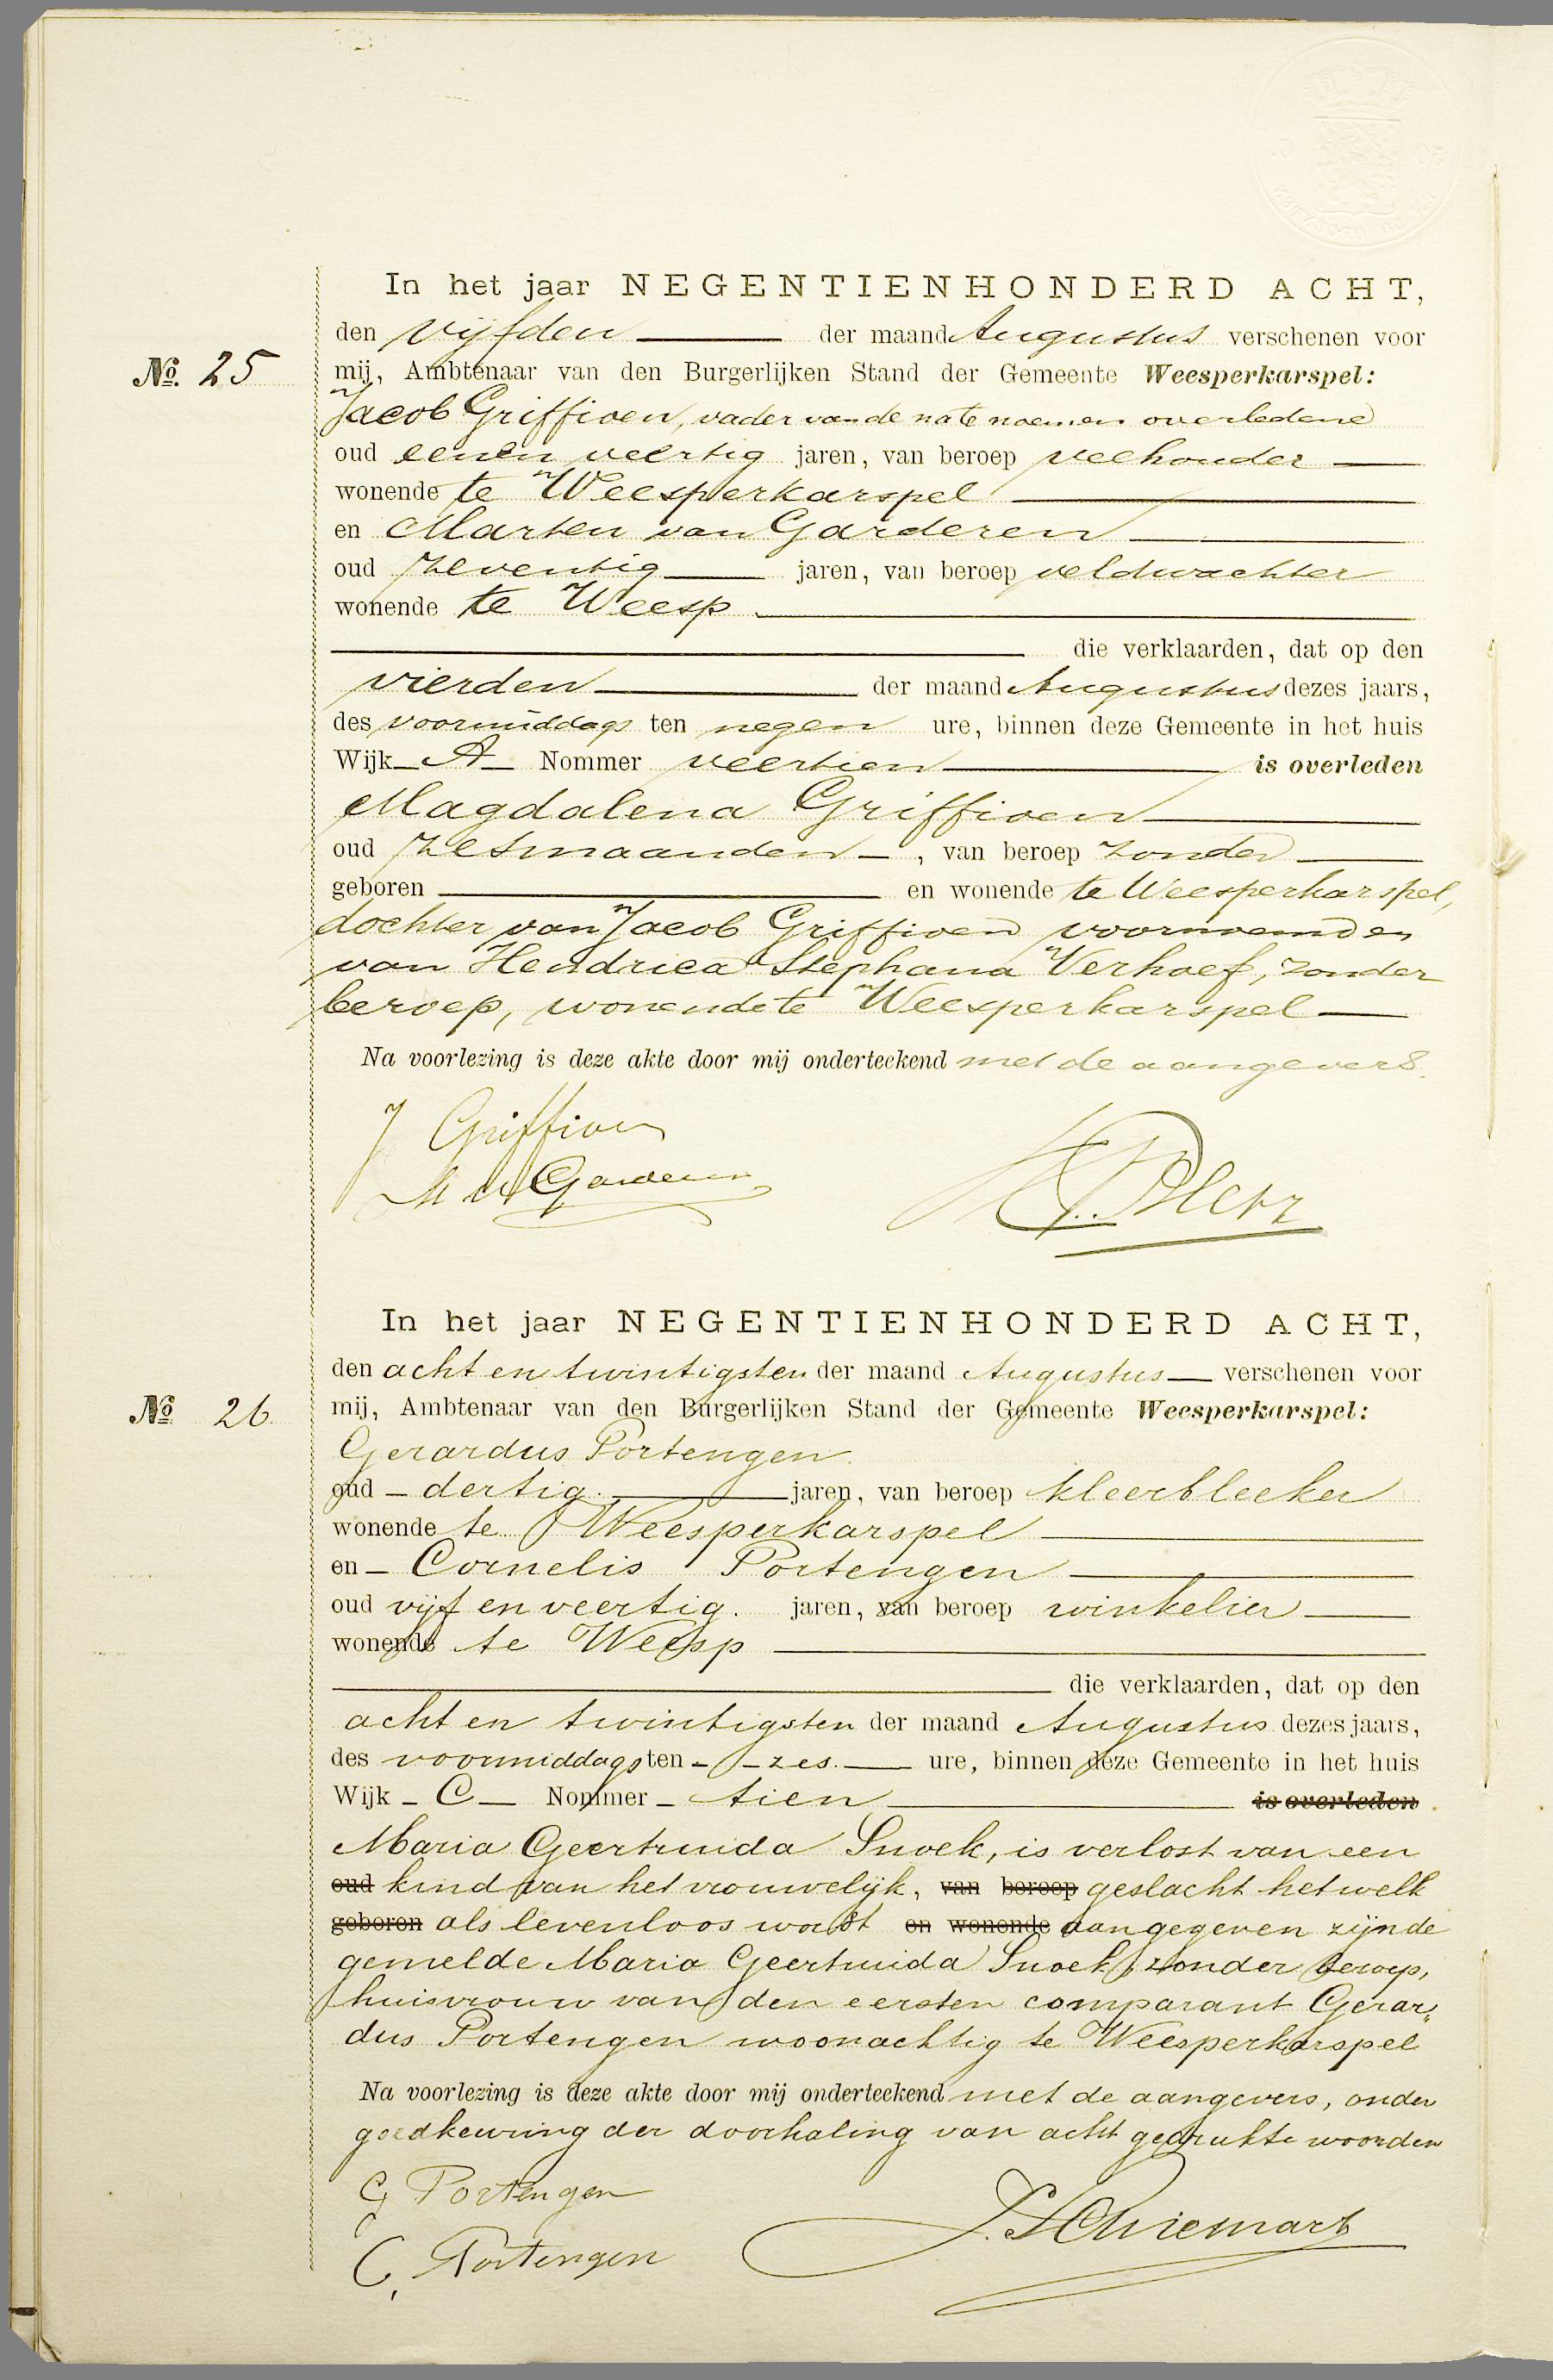 In het jaar NEGENTIENHONDERD ACHT,
den vijfden der maand Augustus verschenen voor
No. 25
mij, Ambtenaar van den Burgerlijken Stand der Gemeente Weesperkarspel:
Jacob Griffioen, vader van de na te noemen overledene
oud eenen veertig jaren, van beroep veehouder
wonende te Weesperkarspel
en Marten van Garderen
oud zeventig jaren, van beroep veldwachter
wonende te Weesp
die verklaarden, dat op den
vierden der maand Augustus dezes jaars,
des voormiddags ten negen ure, binnen deze Gemeente in het huis
Wijk A Nommer veertien is overleden
Magdalena Griffioen
oud zes maanden, van beroep zonder
geboren en wonende te Weesperkarspel,
dochter van Jacob Griffioen voornoemd en
van Hendrica Stephana Verhoef, zonder
beroep, wonende te Weesperkarspel
Na voorlezing is deze akte door mij onderteekend met de aangevers.
J Griffioen
M v Garderen
In het jaar NEGENTIENHONDERD ACHT,
den acht en twintigsten der maand Augustus verschenen voor
No 26
mij, Ambtenaar van den Burgerlijken Stand der Gemeente Weesperkarspel:
Gerardus Portengen.
oud dertig. jaren, van beroep kleerbleeker
wonende te Weesperkarspel
en Cornelis Portengen
oud vijf en veertig. jaren, van beroep winkelier
wonende te Weesp
die verklaarden, dat op den
acht en twintigsten der maand Augustus dezes jaars,
des voormiddags ten zes. ure, binnen deze Gemeente in het huis
Wijk C Nommer tien is overleden
Maria Geertruida Snoek, is verlost van een
oud kind van het vrouwelijk, van beroep geslacht hetwelk
geboren als levenloos wordt en wonende aangegeven zijnde
gemelde Maria Geertruida Snoek, zonder beroep,
huisvrouw van den eersten comparant Gerar„
dus Portengen woonachtig te Weesperkarspel
Na voorlezing is deze akte door mij onderteekend met de aangevers, onder
goedkeuring der doorhaling van acht gedrukte woorden
G Portengen
C. Portengen